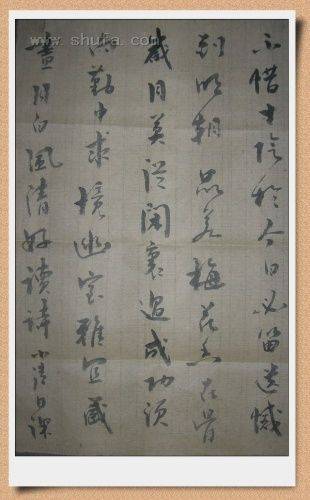 www.shufa.com
不惜寸陰於今日必留遺憾
到明朝品若梅花香在骨
歲月莫從閑裏過成功須
勤中求境幽室雅宜藏
畫月白風清好讀詩小清日課